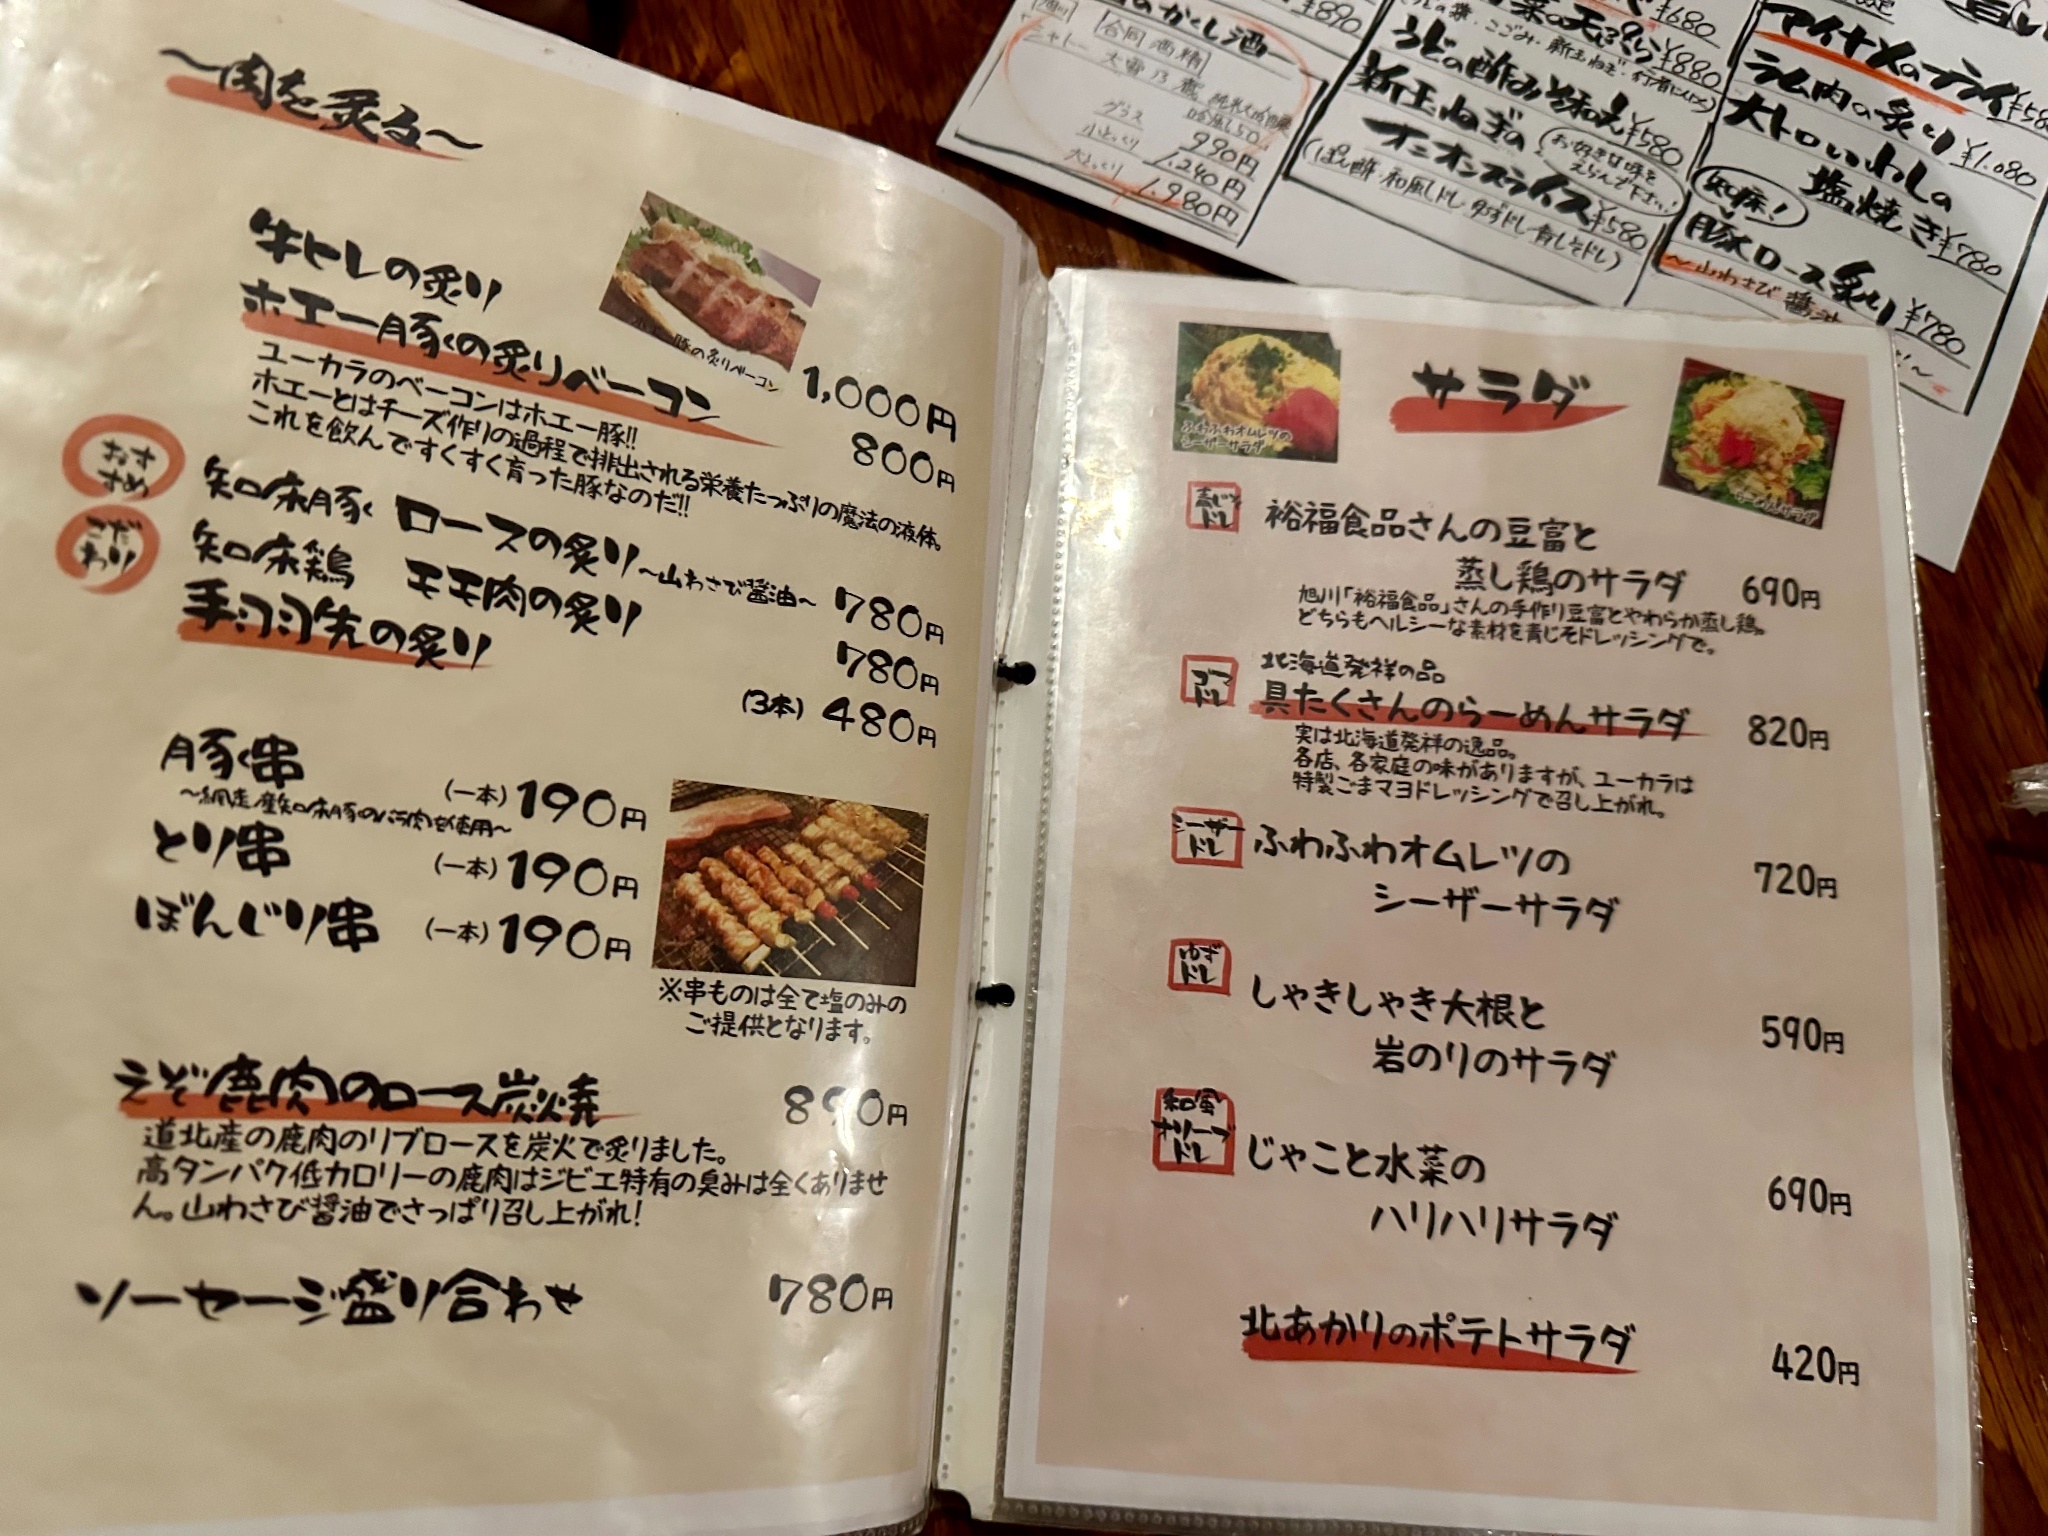 ～肉を炙る～
牛ヒレの炙り 1,000円
ホエー豚の炙りベーコン 800円
ホエー豚の炙りベーコン
ユーカラのベーコンはホエー豚!!
ホエーとはチーズ作りの過程で排出される栄養たっぷりの魔法の液体。
これを飲んですくすく育った豚なのだ!!
おす
すめ
知床豚 ロースの炙り ～山わさび醤油～ 780円
こだ
わり
知床鶏 モモ肉の炙り 780円
手羽先の炙り (3本) 480円
豚串 (一本) 190円
～網走産知床豚のバラ肉を使用～
とり串 (一本) 190円
ぼんじり串 (一本) 190円
※串ものは全て塩のみの
ご提供となります。
えぞ鹿肉のロース炭火焼 890円
道北産の鹿肉のリブロースを炭火で炙りました。
高タンパク低カロリーの鹿肉はジビエ特有の臭みは全くありませ
ん。山わさび醤油でさっぱり召し上がれ!
ソーセージ盛り合わせ 780円
サラダ
ふわふわオムレツの
シーザーサラダ
らーめんサラダ
青じソ
ドレ
裕福食品さんの豆富と
蒸し鶏のサラダ 690円
旭川「裕福食品」さんの手作り豆富とやわらか蒸し鶏。
どちらもヘルシーな素材を青じそドレッシングで。
ゴマ
ドレ
北海道発祥の品
具たくさんのらーめんサラダ 820円
実は北海道発祥の逸品。
各店、各家庭の味がありますが、ユーカラは
特製ごまマヨドレッシングで召し上がれ。
シーザー
ドレ
ふわふわオムレツの
シーザーサラダ 720円
ゆず
ドレ
しゃきしゃき大根と
岩のりのサラダ 590円
和風
オリーブ
ドレ
じゃこと水菜の
ハリハリサラダ 690円
北あかりのポテトサラダ 420円
のかくし酒
旭川
合同酒精
シャトー
大雪乃蔵 純米大吟醸
吟風50
グラス 990円
小とっくり 1.240円
大とっくり 1.980円
¥890
¥680
菜の天ぷら ¥880
こごみ・新玉ねぎ・行者にんにく)
うどの酢みそ和え ¥580
新玉ねぎの
オニオンスライス ¥580
お好きな味を
えらんで下さい!
(ぽん酢・和風ドレ・ゆずドレ・青しそドレ)
アイナメのフライ ¥580
ラム肉の炙り ¥1.080
大トロいわしの
塩焼き ¥780
知床!
豚ロース炙り ¥780
～山わさび醤油